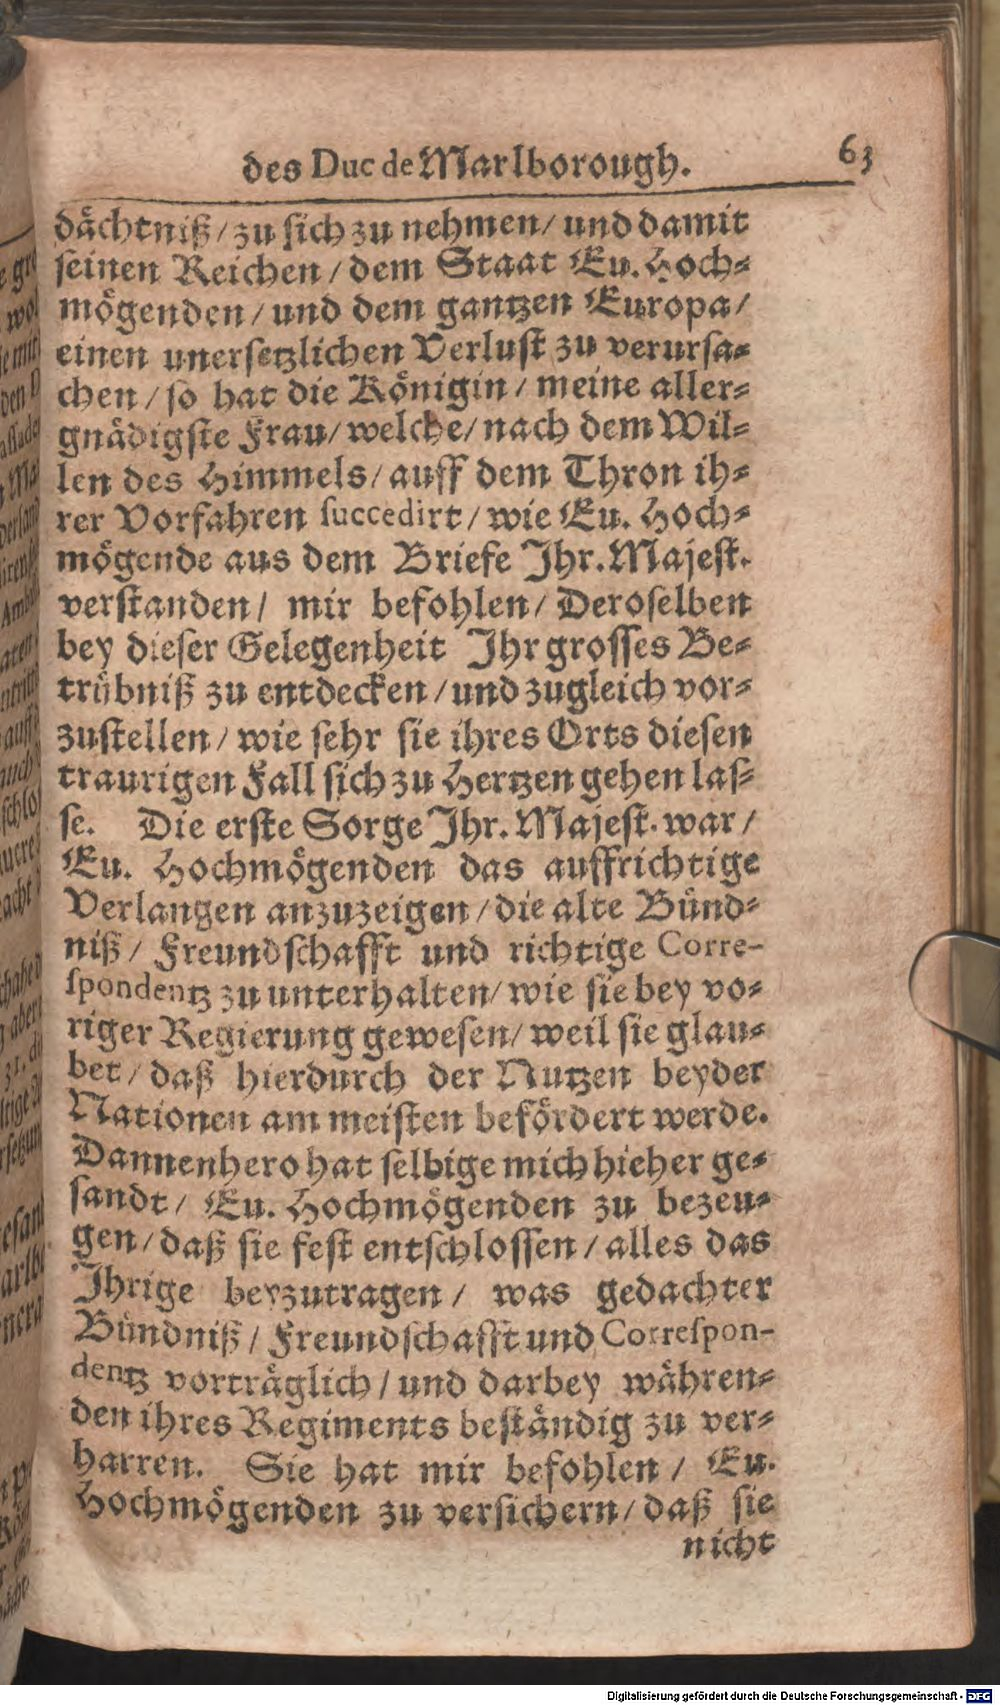 des Duc de Marlborough. 63
dächtniß/ zu sich zu nehmen/ und damit
seinen Reichen/ dem Staat Eu. Hoch-
mögenden/ und dem gantzen Europa/
einen unersetzlichen Verlust zu verursa-
chen/ so hat die Königin/ meine aller-
gnädigste Frau/ welche/ nach dem Wil-
len des Himmels/ auff dem Thron ih-
rer Vorfahren succedirt/ wie Eu. Hoch-
mögende aus dem Briefe Ihr. Majest.
verstanden/ mir befohlen/ Deroselben
bey dieser Gelegenheit Ihr grosses Be-
trübniß zu entdecken/ und zugleich vor-
zustellen/ wie sehr sie ihres Orts diesen
traurigen Fall sich zu Hertzen gehen las-
se. Die erste Sorge Ihr. Majest. war/
Eu. Hochmögenden das auffrichtige
Verlangen anzuzeigen/ die alte Bünd-
niß/ Freundschafft und richtige Corre-
spondentz zu unterhalten/ wie sie bey vo-
riger Regierung gewesen/ weil sie glau-
bet/ daß hierdurch der Nutzen beyder
Nationen am meisten befördert werde.
Dannenhero hat selbige mich hieher ge-
sandt/ Eu. Hochmögenden zu bezeu-
gen/ daß sie fest entschlossen/ alles das
Ihrige beyzutragen/ was gedachter
Bündniß/ Freundschafft und Correspon-
dentz vorträglich/ und darbey währen-
den ihres Regiments beständig zu ver-
harren. Sie hat mir befohlen/ Eu.
Hochmögenden zu versichern/ daß sie
nicht
Digitalisierung gefördert durch die Deutsche Forschungsgemeinschaft - DFG